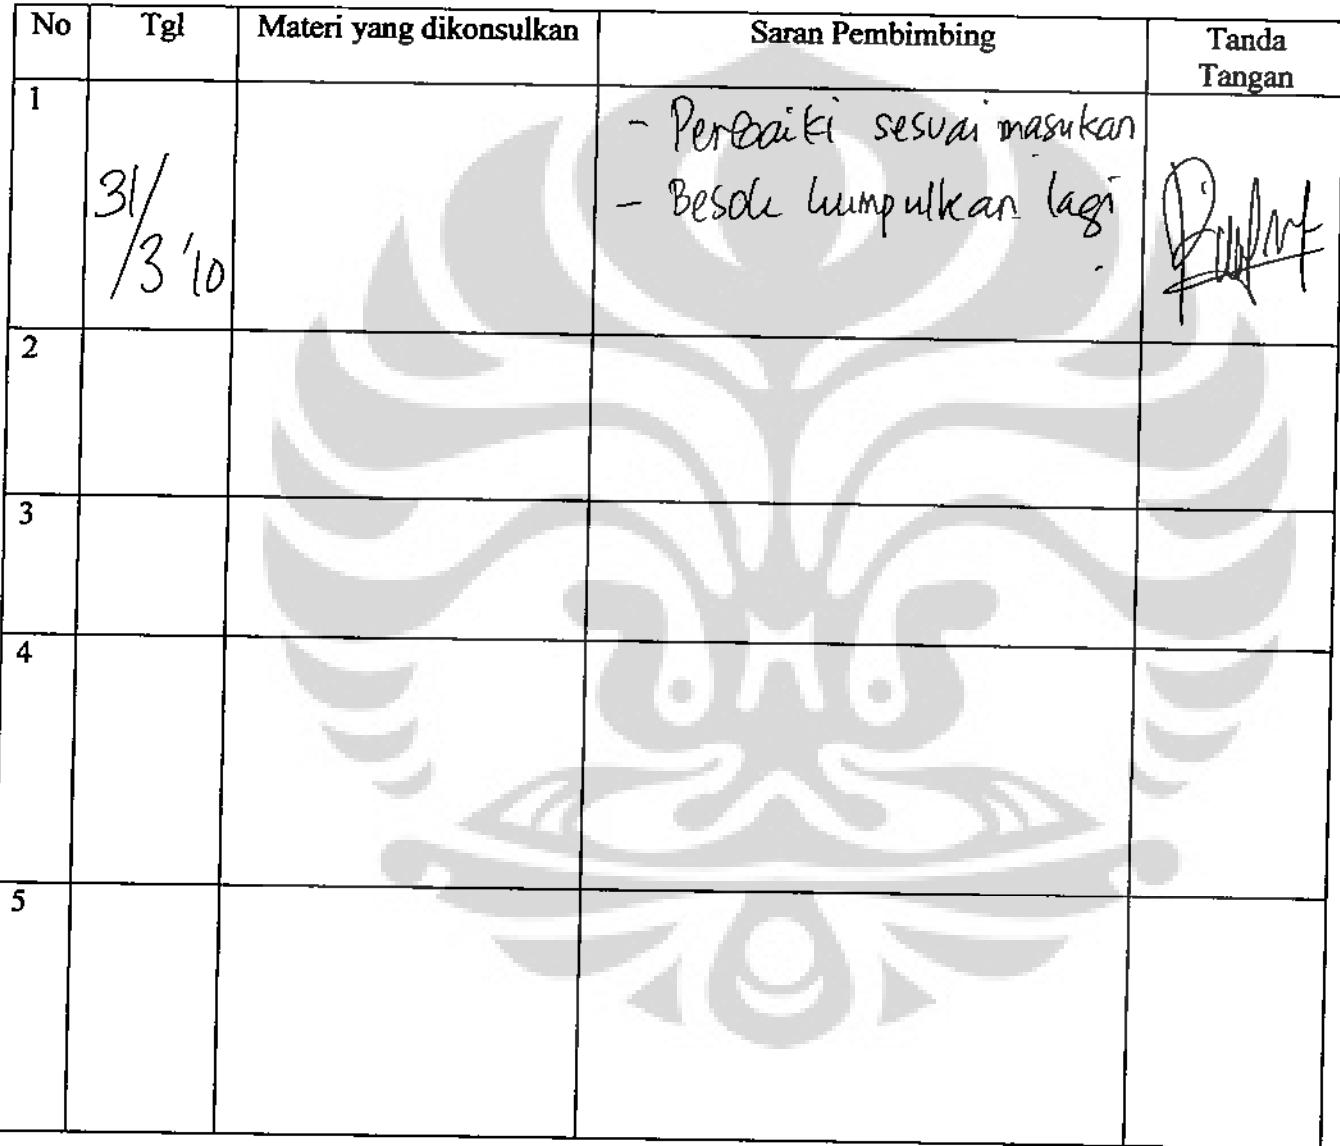 No Tgl Materi yang dikonsulkan Saran Pembimbing Tanda
Tangan
1
- Perbaiki sesuai masukan
31/3 '10
- Besok kumpulkan lagi
2
3
4
5